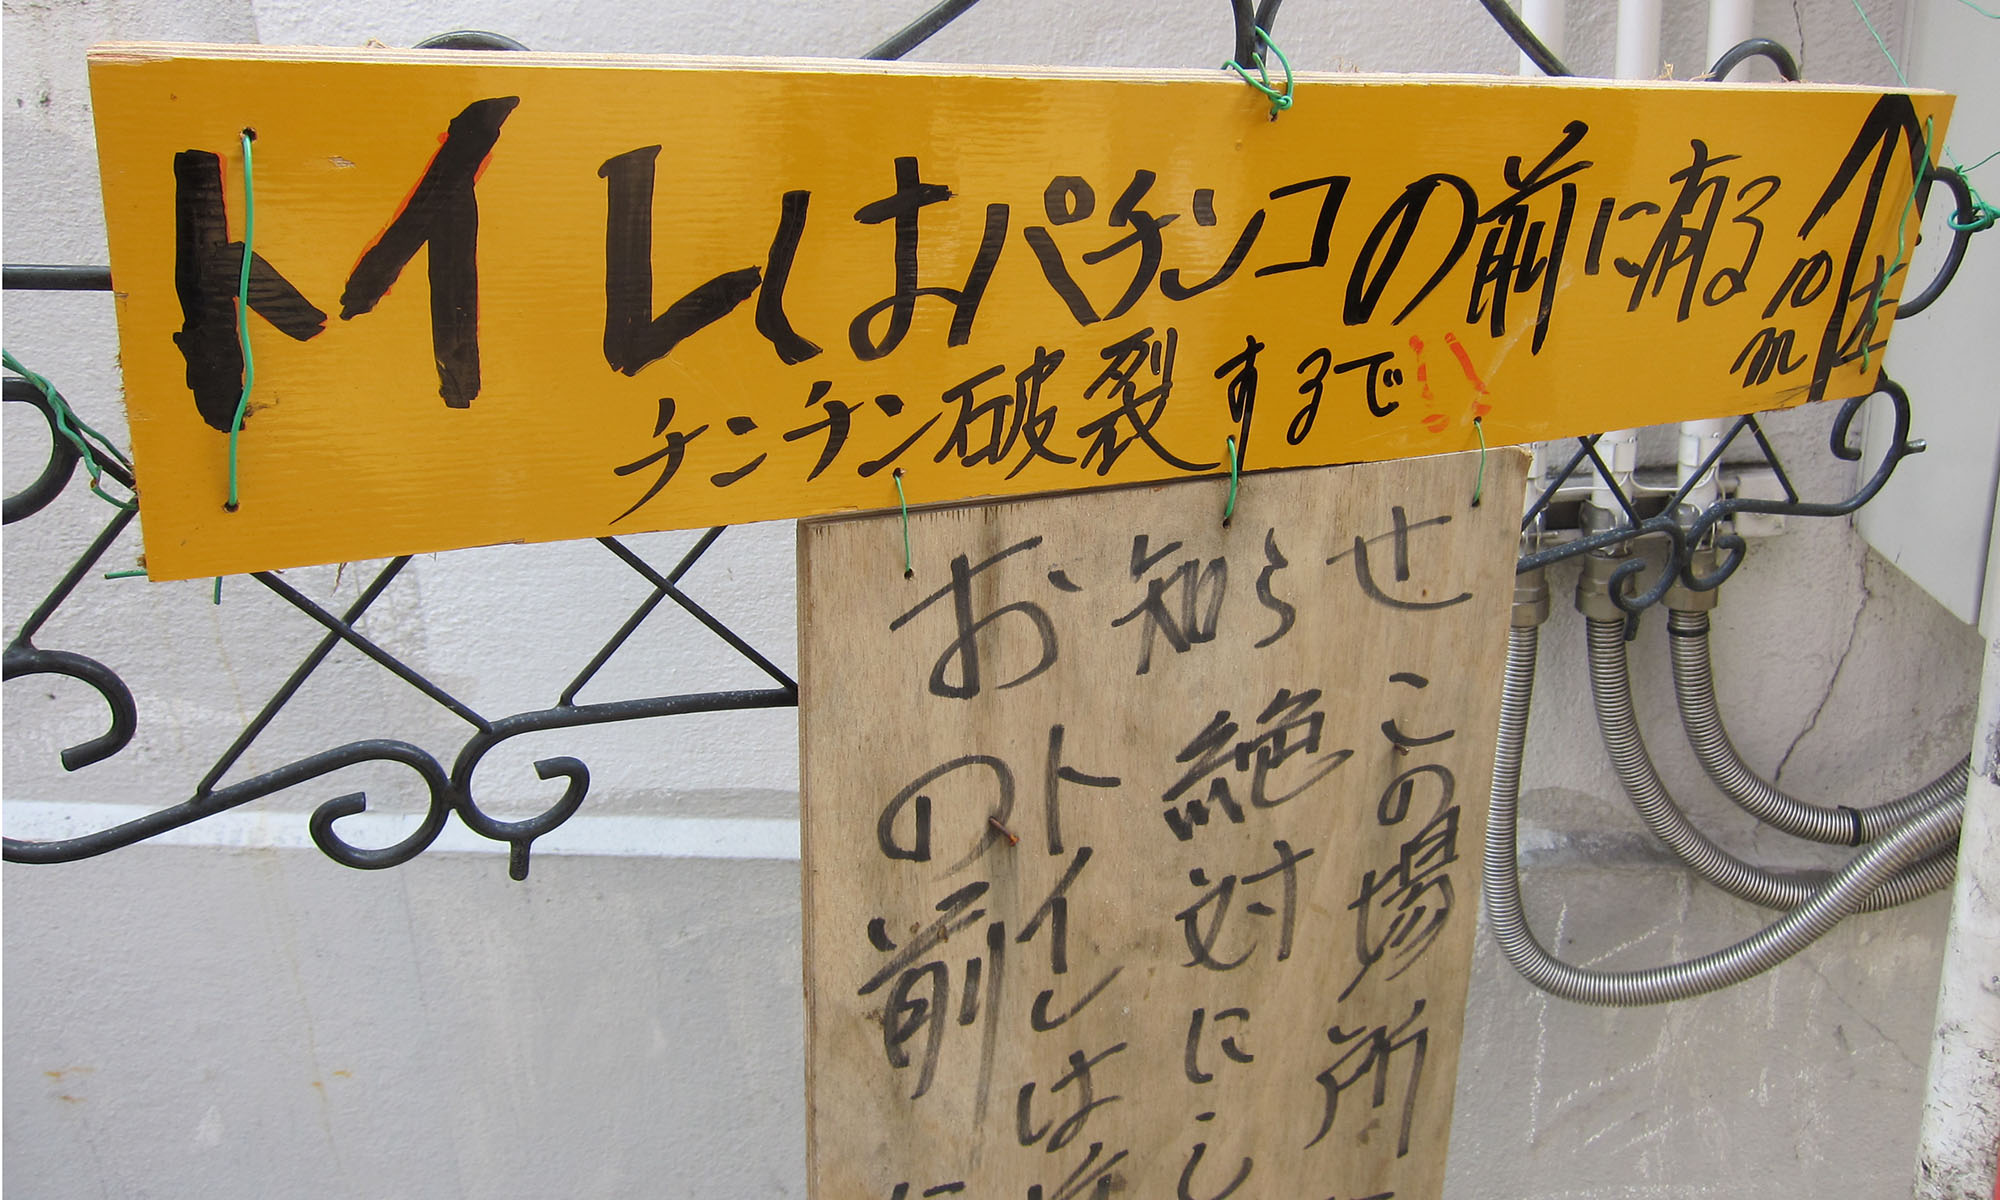 トイレはパチンコの前に有る
10m
チンチン破裂するまで!!
お知らせ
この場所
絶対にし
トイレは
の前に